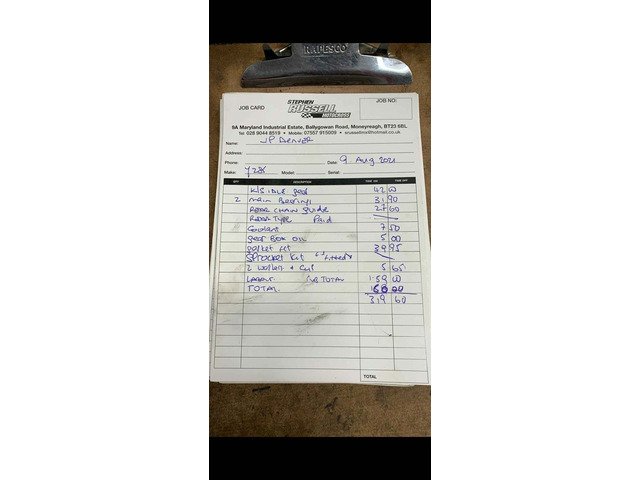 RAPESCO
JOB CARD
STEPHEN
RUSSELL
MOTOCROSS
JOB NO:
9A Maryland Industrial Estate, Ballygowan Road, Moneyreagh, BT23 6BL
Tel 028 9044 8519 • Mobile: 07557 915009 • srussellmx@hotmail.com
Name: JP
Address:
Phone: Date: 9 Aug 2021
Make: Model: Serial:
QTY DESCRIPTION
42 00
2 main Bearings 31 90
Rear chain Guide 27 00
Rear Tyre Paid
Coolant 7 50
Gear Box oil 5 00
gasket kit 39 95
Sprocket kit
2 5 65
Labour SUB TOTAL 159 00
TOTAL 00
319 60
TOTAL